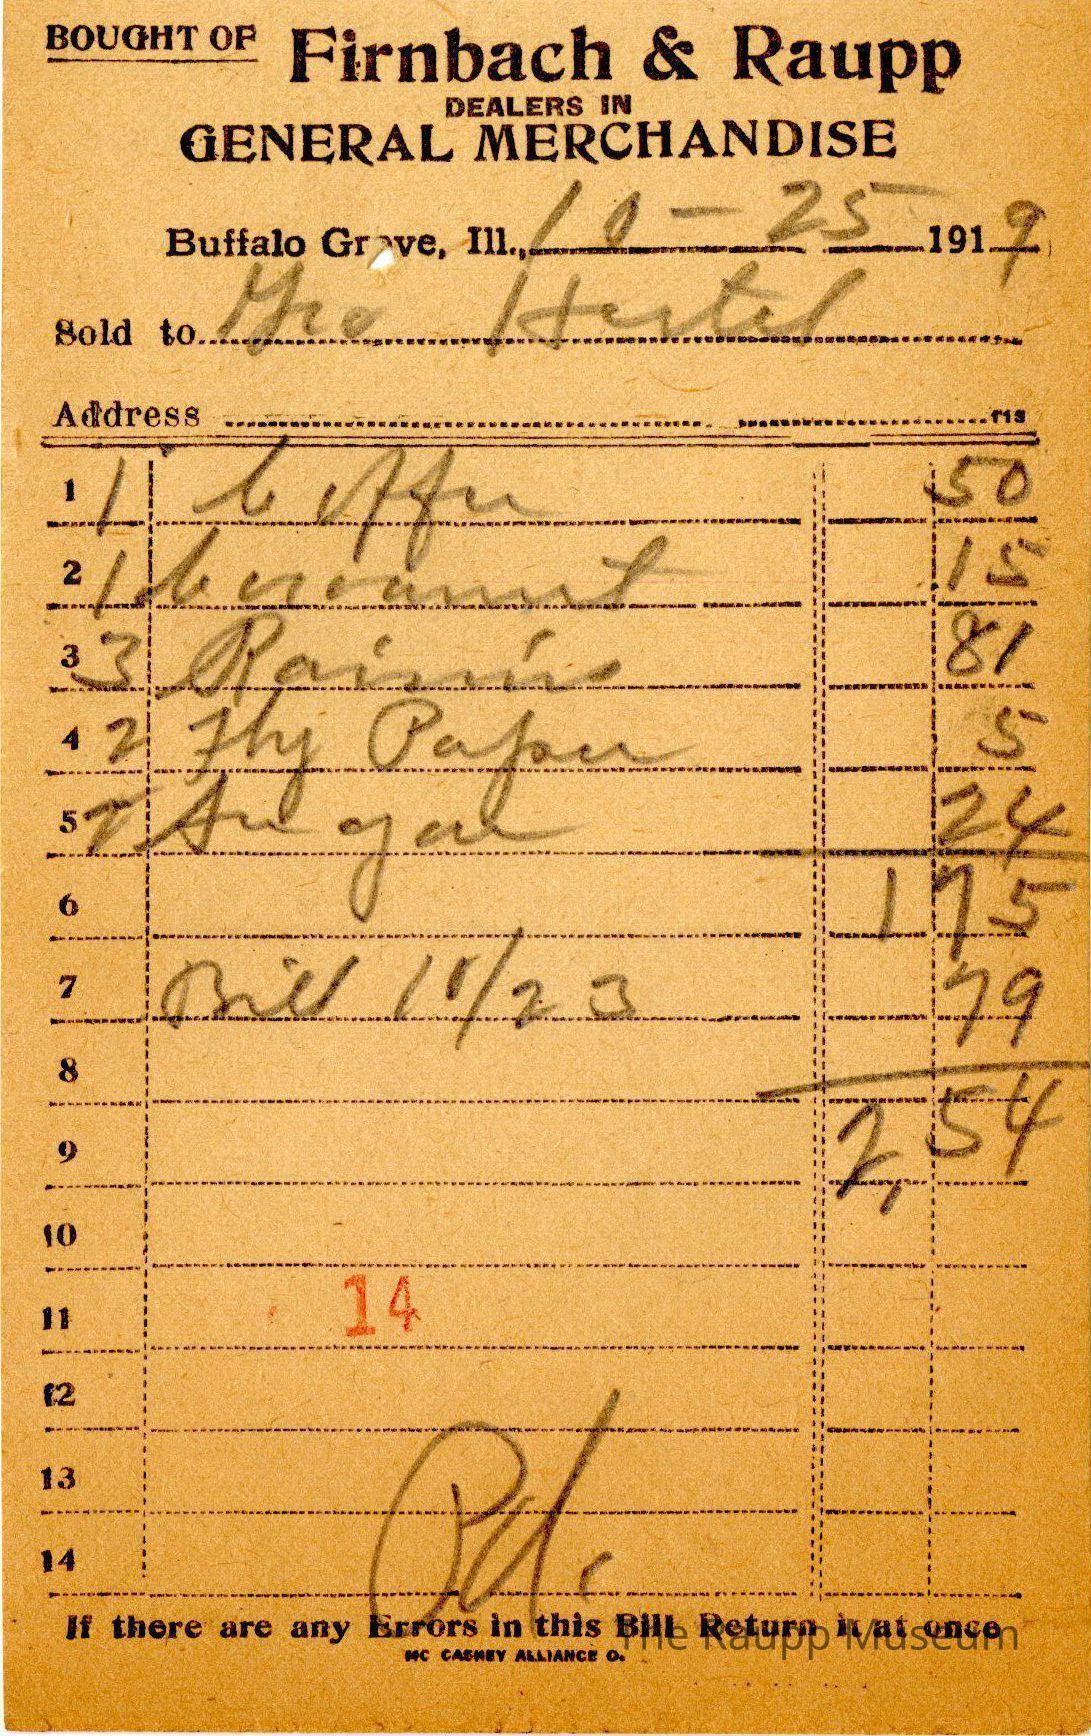 BOUGHT OF Firnbach & Raupp
DEALERS IN
GENERAL MERCHANDISE
Buffalo Grove, Ill., 10-25 1919
Sold to Geo Hertel
Address
1 1 Coffee 50
2 1 Cocoanut 15
3 3 Raisins 81
4 2 Fly Paper 5
5 2 Sugar 24
6 1 75
7 Bill 10/23 79
8
9 2,54
10
11 14
12
13
14 Pd.
If there are any Errors in this Bill Return it at once
The Raupp Museum
MC CASKEY ALLIANCE O.